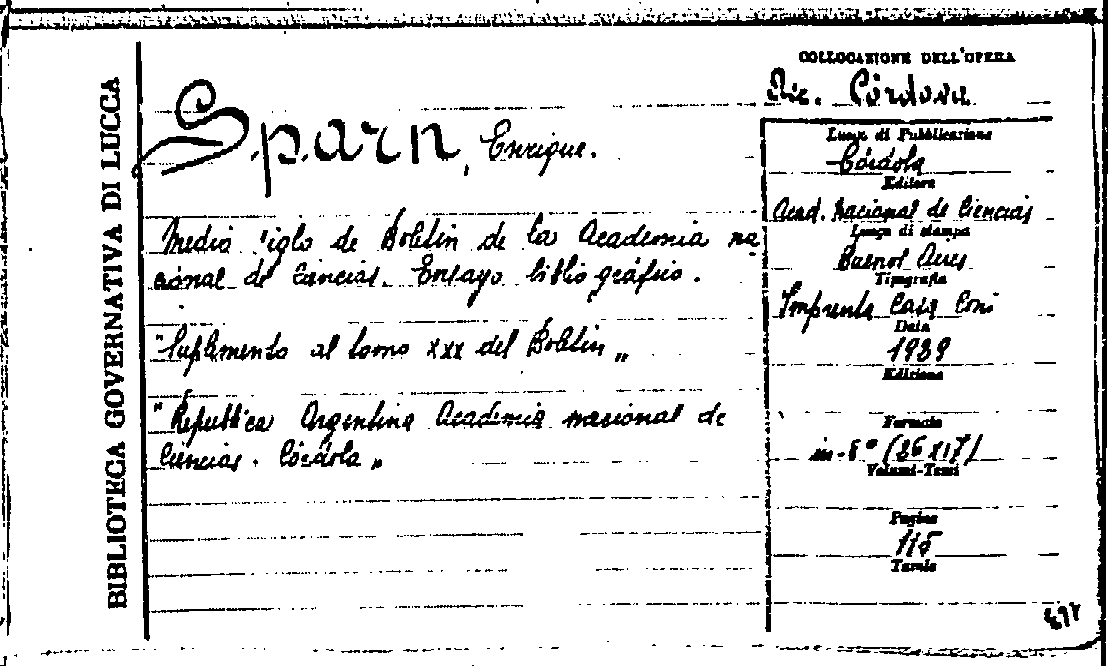 BIBLIOTECA GOVERNATIVA DI LUCCA
COLLOCAZIONE DELL'OPERA
Córdova
Sparn, Enrique.
Medio siglo de Boletin de la Academia na
cional de Ciencias. Ensayo bibliográfico.
"Suplemento al tomo XXX del Boletin"
"Republica Argentina Academia nacional de
Ciencias. Córdola"
Luogo di Pubblicazione
Córdola
Editore
Acad. Nacional de Ciencias
Luogo di stampa
Buenos Aires
Tipografia
Imprenta Casa Coni
Data
1939
Edizione
Formato
in-8° (26x17)
Volumi-Tomi
Pagine
115
Tavole